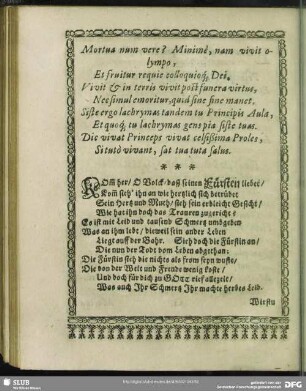 Mortua num vere? Minimè, nam vivit o-
lympo,
Et fruitur requie colloquioq́; Dei.
Vivit & in terris vivit post funera virtus,
Nec simul emoritur, quid sine sine manet.
Siste ergo lachrymas tandem tu Principis Aula,
Et quoq́; tu lachrymas gens pia siste tuas.
Die vivat Princeps vivat celsissima Proles,
Si tutò vivant, sat tua tuta salus.
* * *
Kom̃ her / O Volck / daß seinen Fürsten liebet /
Kom̃ sieh' ihn an wie hertzlich sich betrübet
Sein Hertz und Muth / sieh sein erbleicht Gesicht /
Wie hat ihn doch das Trauren zugericht?
Es ist mit Leid und tausend Schmertz umbgeben
Was an ihm lebt / dieweil sein ander Leben
Liegt auff der Bahr. Sieh doch die Fürstin an /
Die nun der Todt vom Leben abgethan:
Die Fürstin sieh die nichts als from̃ seyn wuste /
Die von der Welt und Freude wenig koste /
Und doch für dich zu GOtt rieff allezeit /
Was auch Ihr Schmertz Ihr machte hertzes Leid.
Wirstu
SLUB
Wir führen Wissen.
gefördert von der
Deutschen Forschungsgemeinschaft
DFG